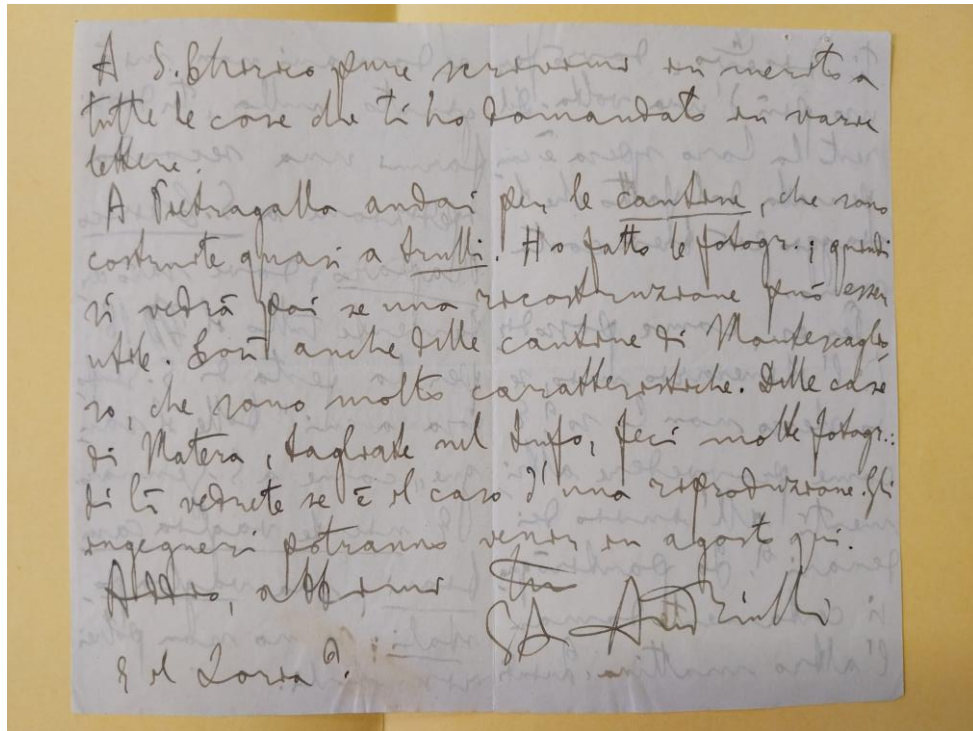 A S. Chirico pure scrivimi in merito a
tutte le cose che ti ho domandato in varie
lettere.
A Pietragalla andai per le cantine, che sono
costruite quasi a trulli. Ho fatto le fotogr.; quindi
si vedrà poi se una ricostruzione può esser
utile. Così anche delle cantine di Montescaglio
so, che sono molto caratteristiche. Delle case
di Matera, tagliate nel tufo, feci molte fotogr.:
di lì vedrete se è il caso d'una riproduzione. Gli
ingegneri potranno venir in agosto qui.
Addio,
E il Loria?